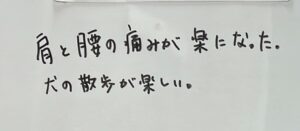 肩と腰の痛みが楽になった.
犬の散歩が楽しい。